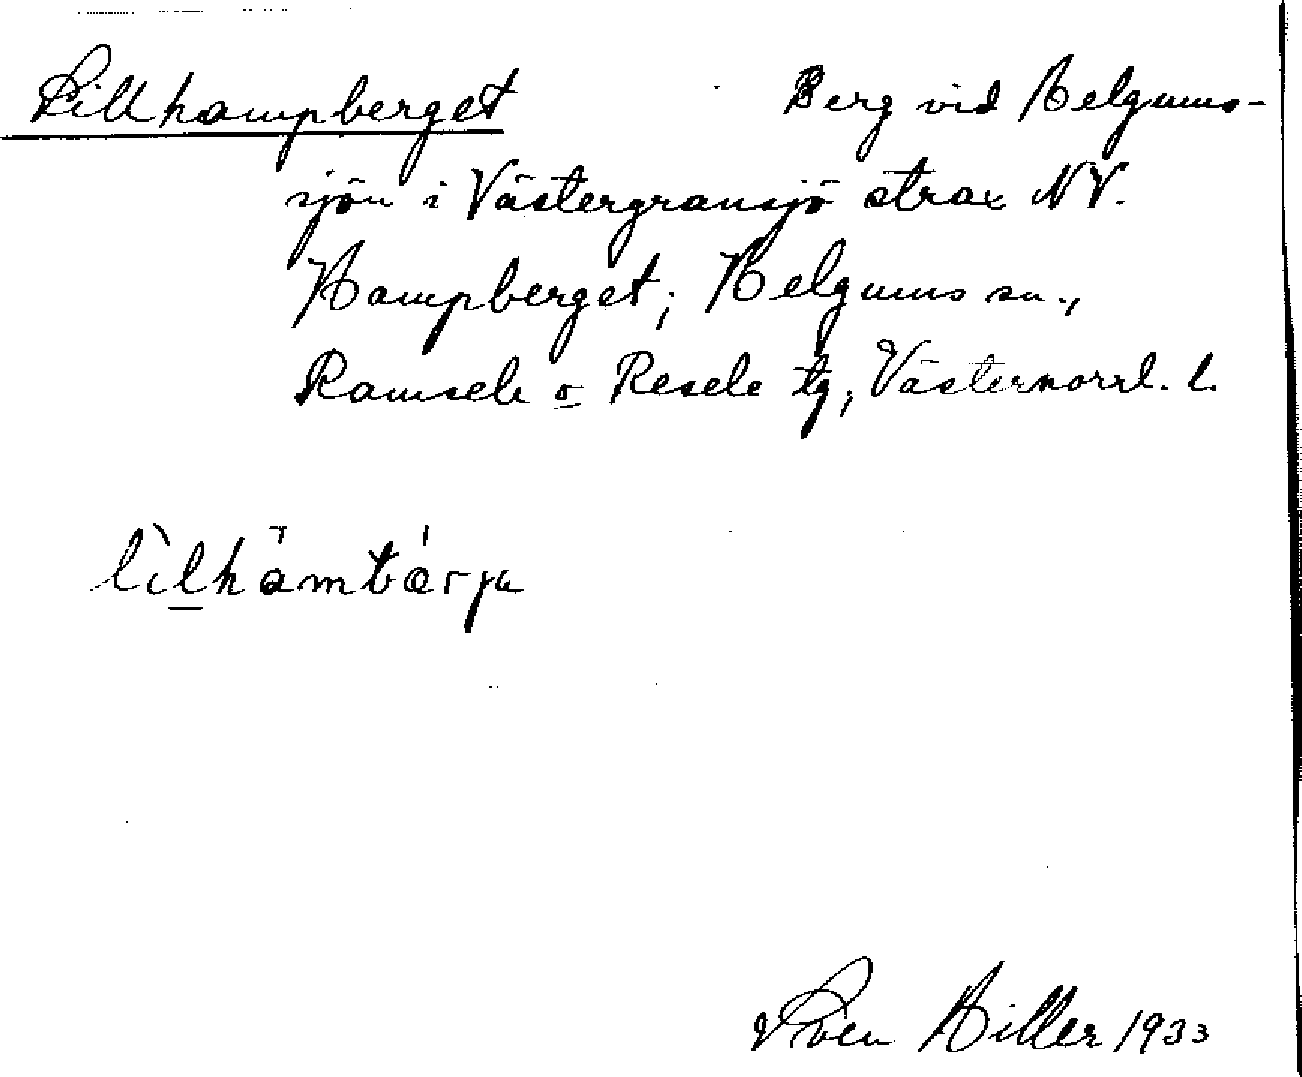 Lillhampberget Berg vid Helgums-
sjön i Västergransjö strax NV.
Hampberget; Helgums sn.,
Ramsele o Resele tg, Västernorrl. l.
Sven Hiller 1933